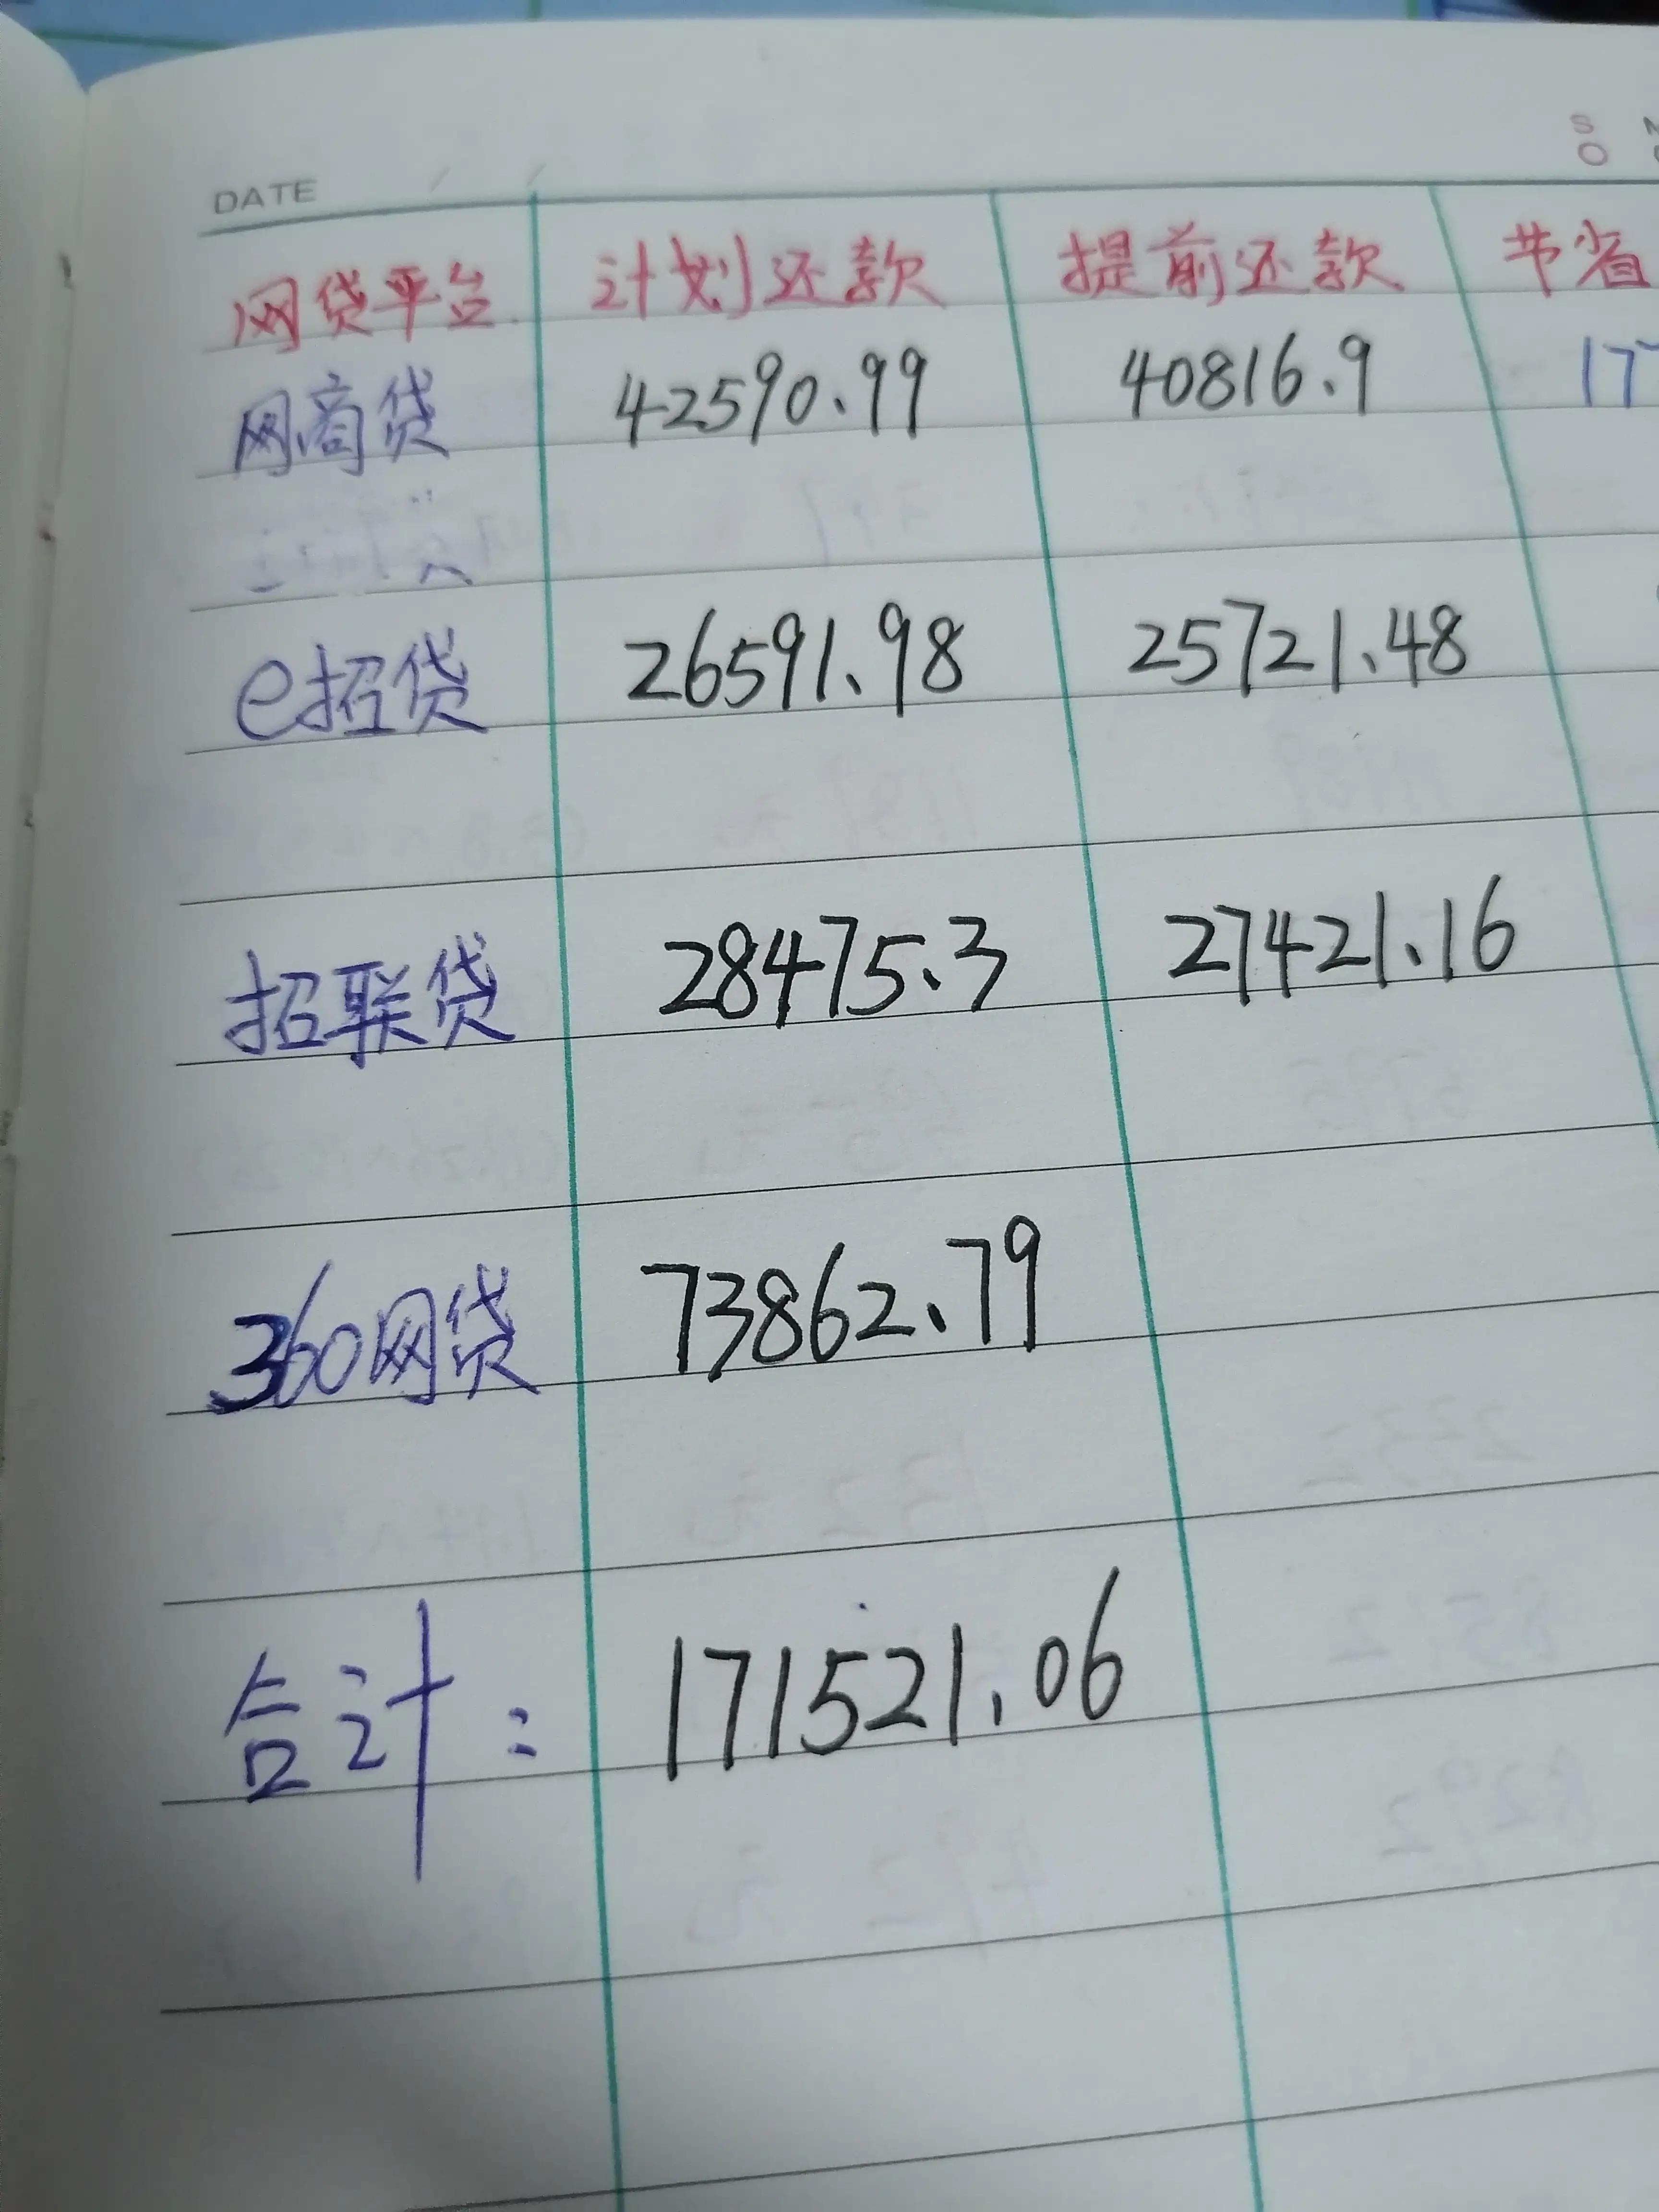 DATE / / S
网贷平台 计划还款 提前还款 节省
网商贷 42590.99 40816.9 17
e招贷 26591.98 25721.48
招联贷 28475.3 27421.16
360网贷 73862.79
合计: 171521.06